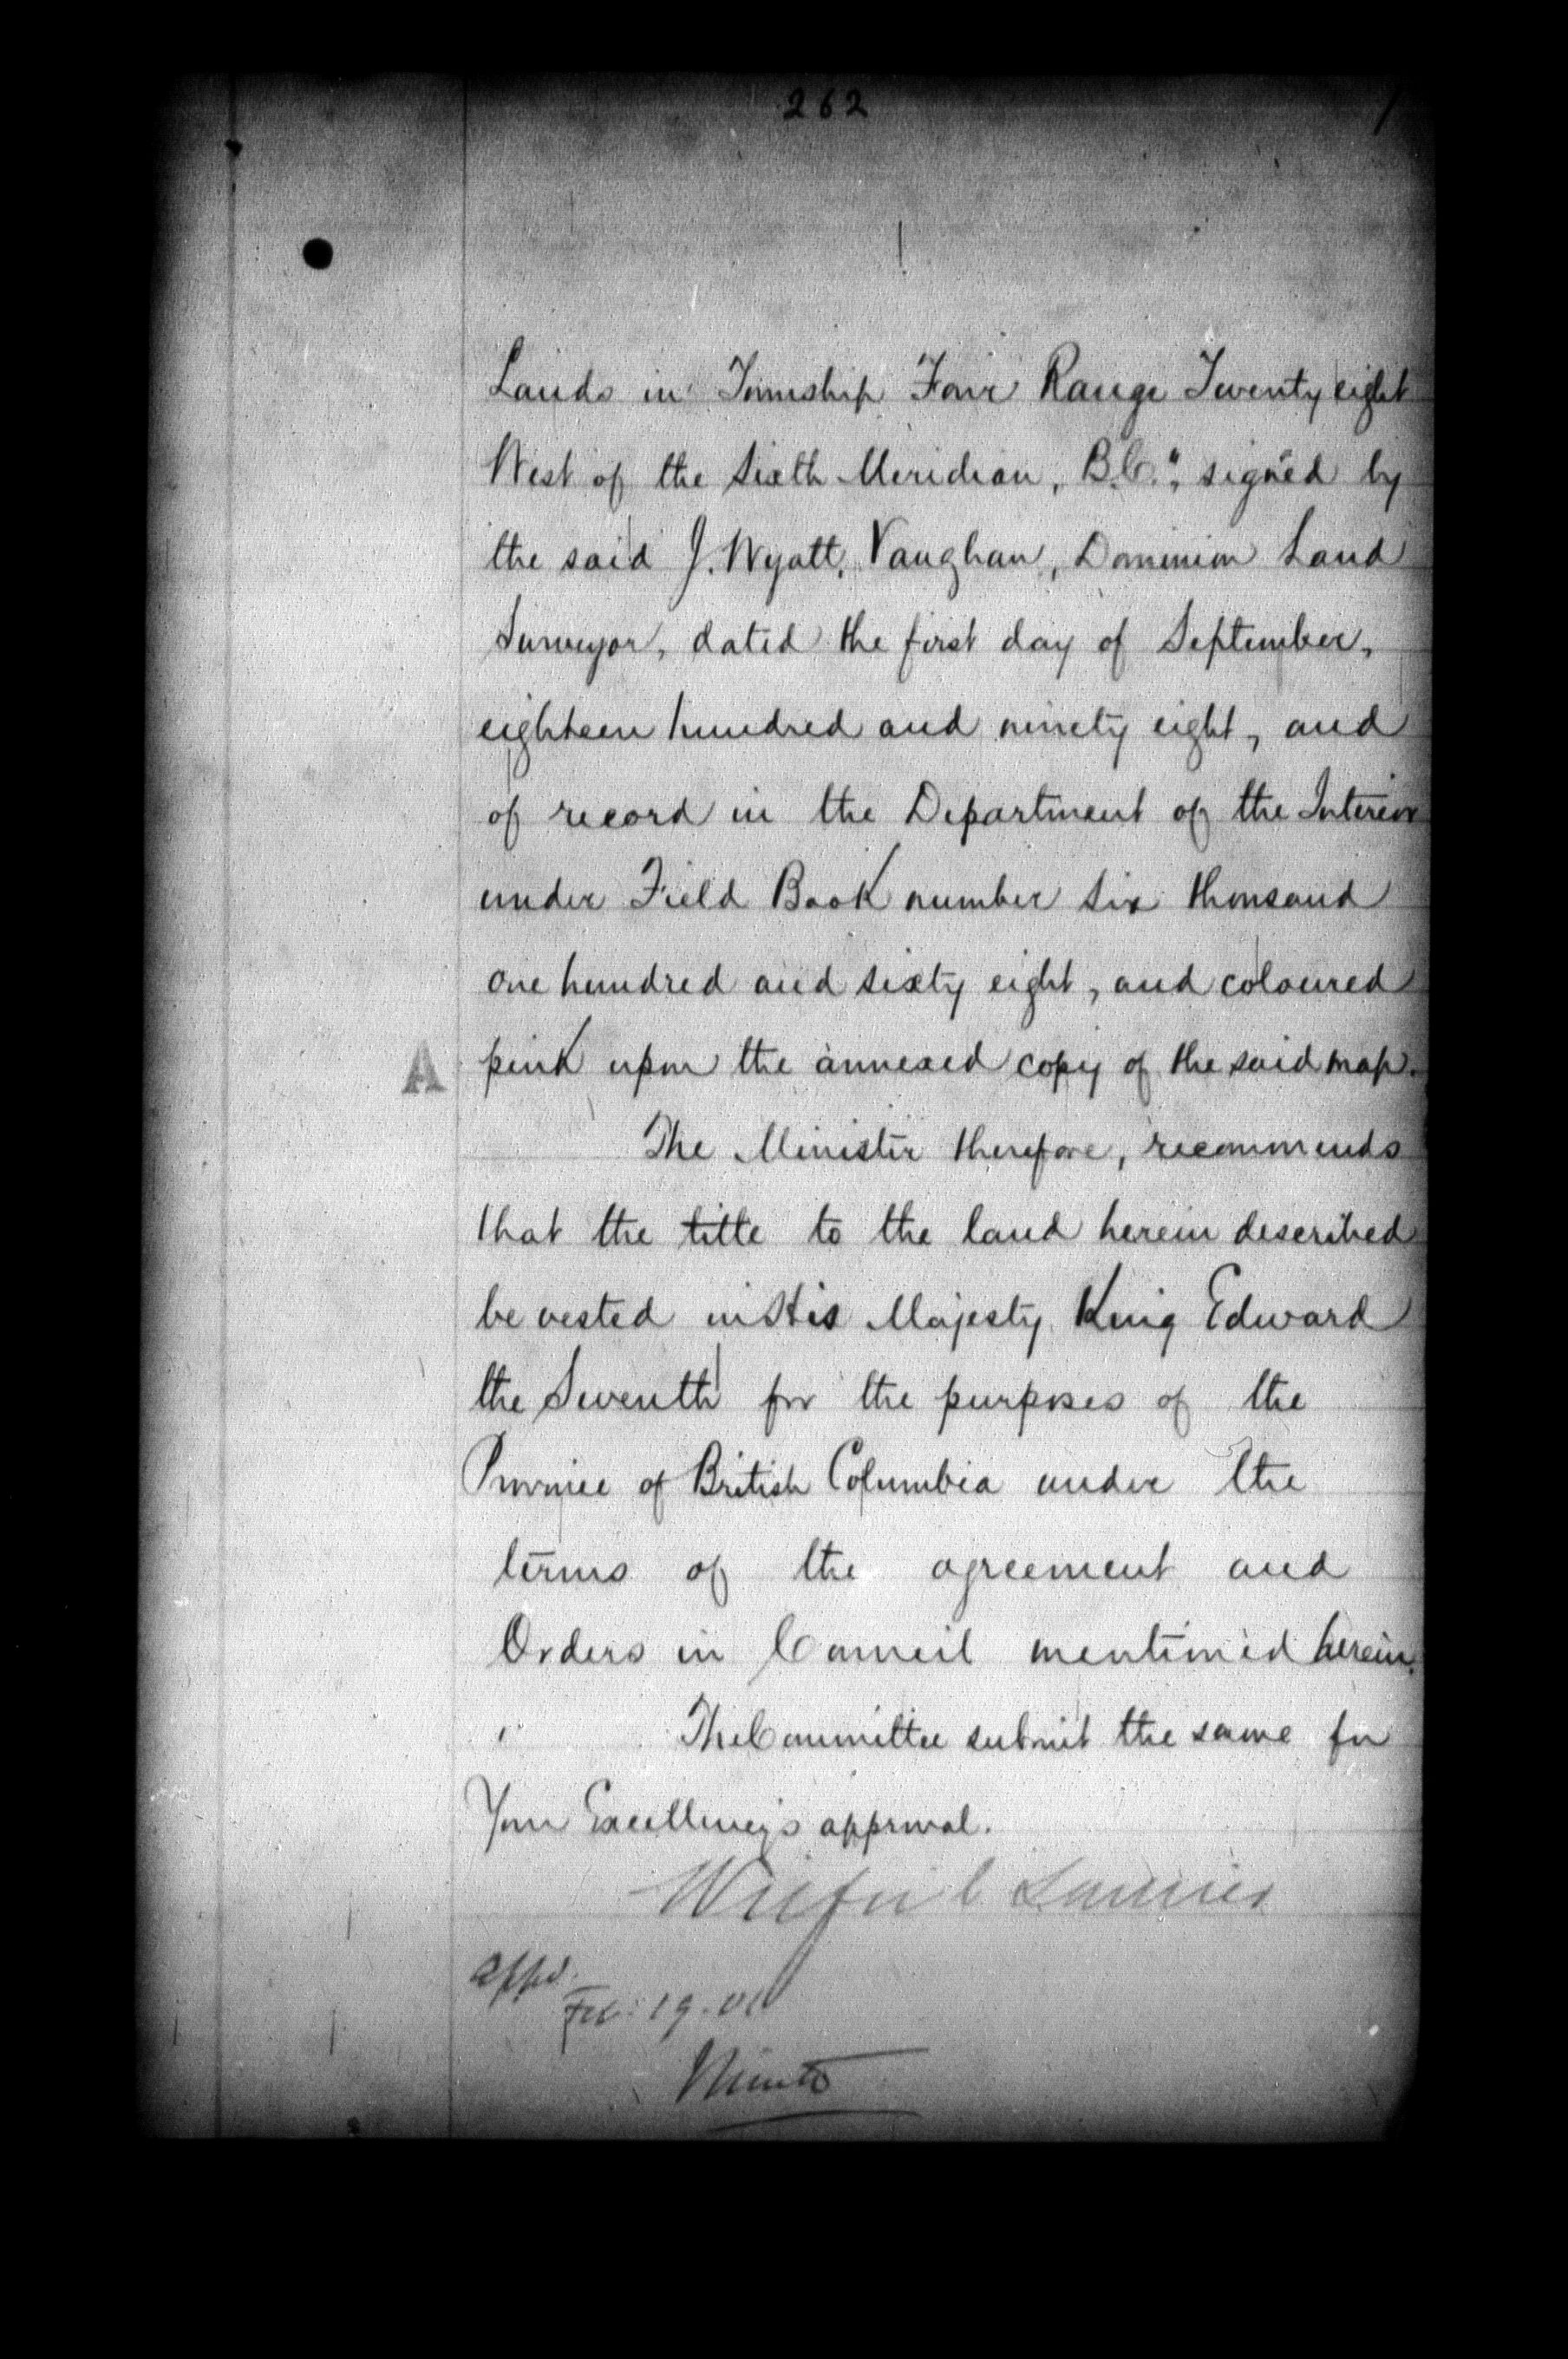 262
Lands in Township Four Range Twenty eight
West of the Sixth Meridian, B.C.", signed by
the said J. Wyatt, Vaughan, Dominion Land
Surveyor, dated the first day of September,
eighteen hundred and ninety eight, and
of record in the Department of the Interior
under Field Book number six thousand
one hundred and sixty eight, and coloured
A pink upon the annexed copy of the said map.
The Minister therefore, recommends
that the title to the land herein described
be vested in His Majesty King Edward
the Seventh for the purposes of the
Province of British Columbia under the
terms of the agreement and
Orders in Council mentioned herein.
The Committee submit the same for
Your Excellency's approval.
Wilfrid Laurier
Appd.
Feb: 19. 01
Minto